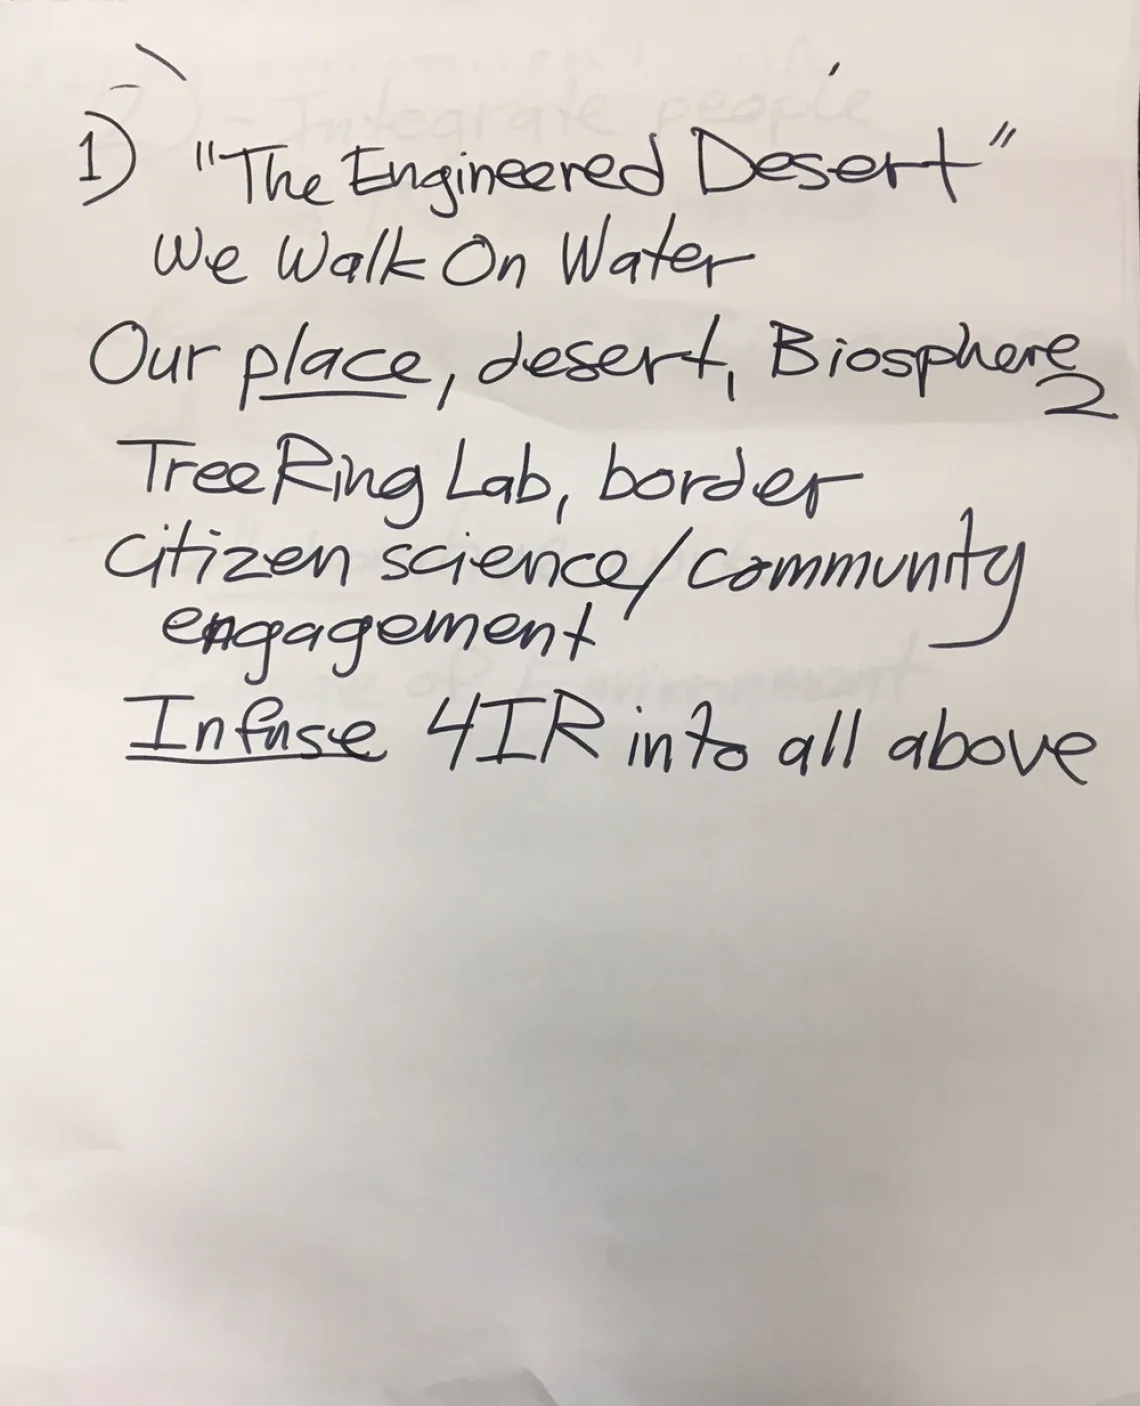 1) "The Engineered Desert"
We Walk On Water
Our place, desert, Biosphere 2
Tree Ring Lab, border
citizen science/community
engagement
Infuse 4IR into all above